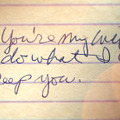 You're my
do what I
keep you.